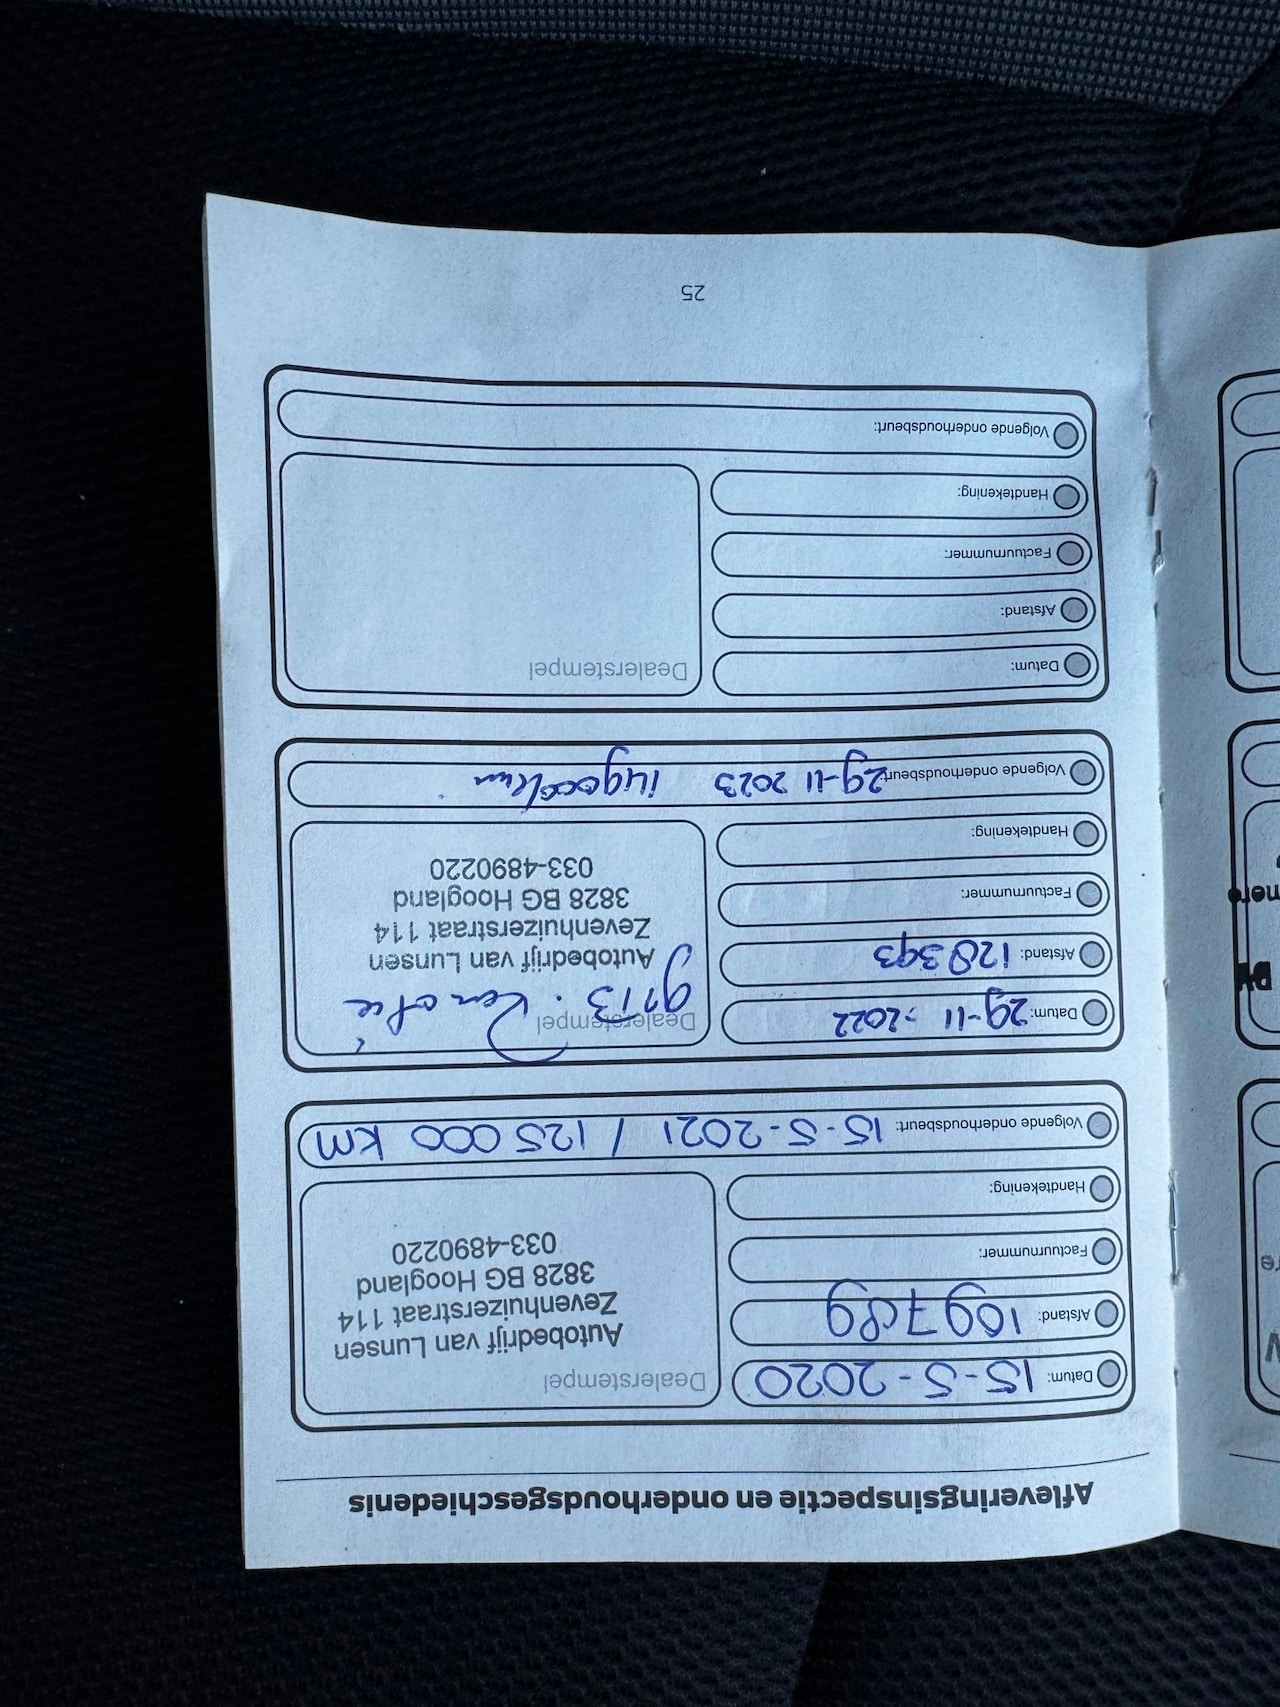 Afleveringsinspectie en onderhoudsgeschiedenis
Datum: 15-5-2020
Afstand: 109789
Factuurnummer:
Handtekening:
Dealerstempel
Autobedrijf van Lunsen
Zevenhuizerstraat 114
3828 BG Hoogland
033-4890220
Volgende onderhoudsbeurt: 15-5-2021 / 125000 KM
Datum: 29-11-2022
Afstand: 128393
Factuurnummer:
Handtekening:
Dealerstempel
Autobedrijf van Lunsen
Zevenhuizerstraat 114
3828 BG Hoogland
033-4890220
Volgende onderhoudsbeurt: 29-11 2023 149000km
Datum:
Afstand:
Factuurnummer:
Handtekening:
Dealerstempel
Volgende onderhoudsbeurt:
25